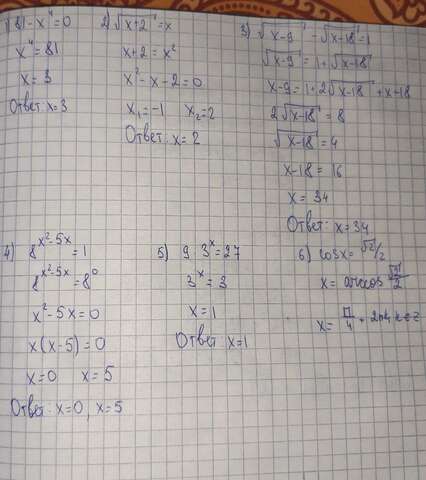 1) 81 - x⁴ = 0
x⁴ = 81
x = 3
Ответ: x = 3
2) √x+2 = x
x + 2 = x²
x² - x - 2 = 0
x₁ = -1 x₂ = 2
Ответ: x = 2
3) √x-9 - √x-18 = 1
√x-9 = 1 + √x-18
x - 9 = 1 + 2√x-18 + x - 18
2√x-18 = 8
√x-18 = 4
x - 18 = 16
x = 34
Ответ: x = 34
4) 8^(x²-5x) = 1
8^(x²-5x) = 8⁰
x² - 5x = 0
x(x - 5) = 0
x = 0 x = 5
Ответ: x = 0, x = 5
5) 9 · 3ˣ = 27
3ˣ = 3
x = 1
Ответ: x = 1
6) cosx = √2/2
x = arccos √2/2
x = π/4